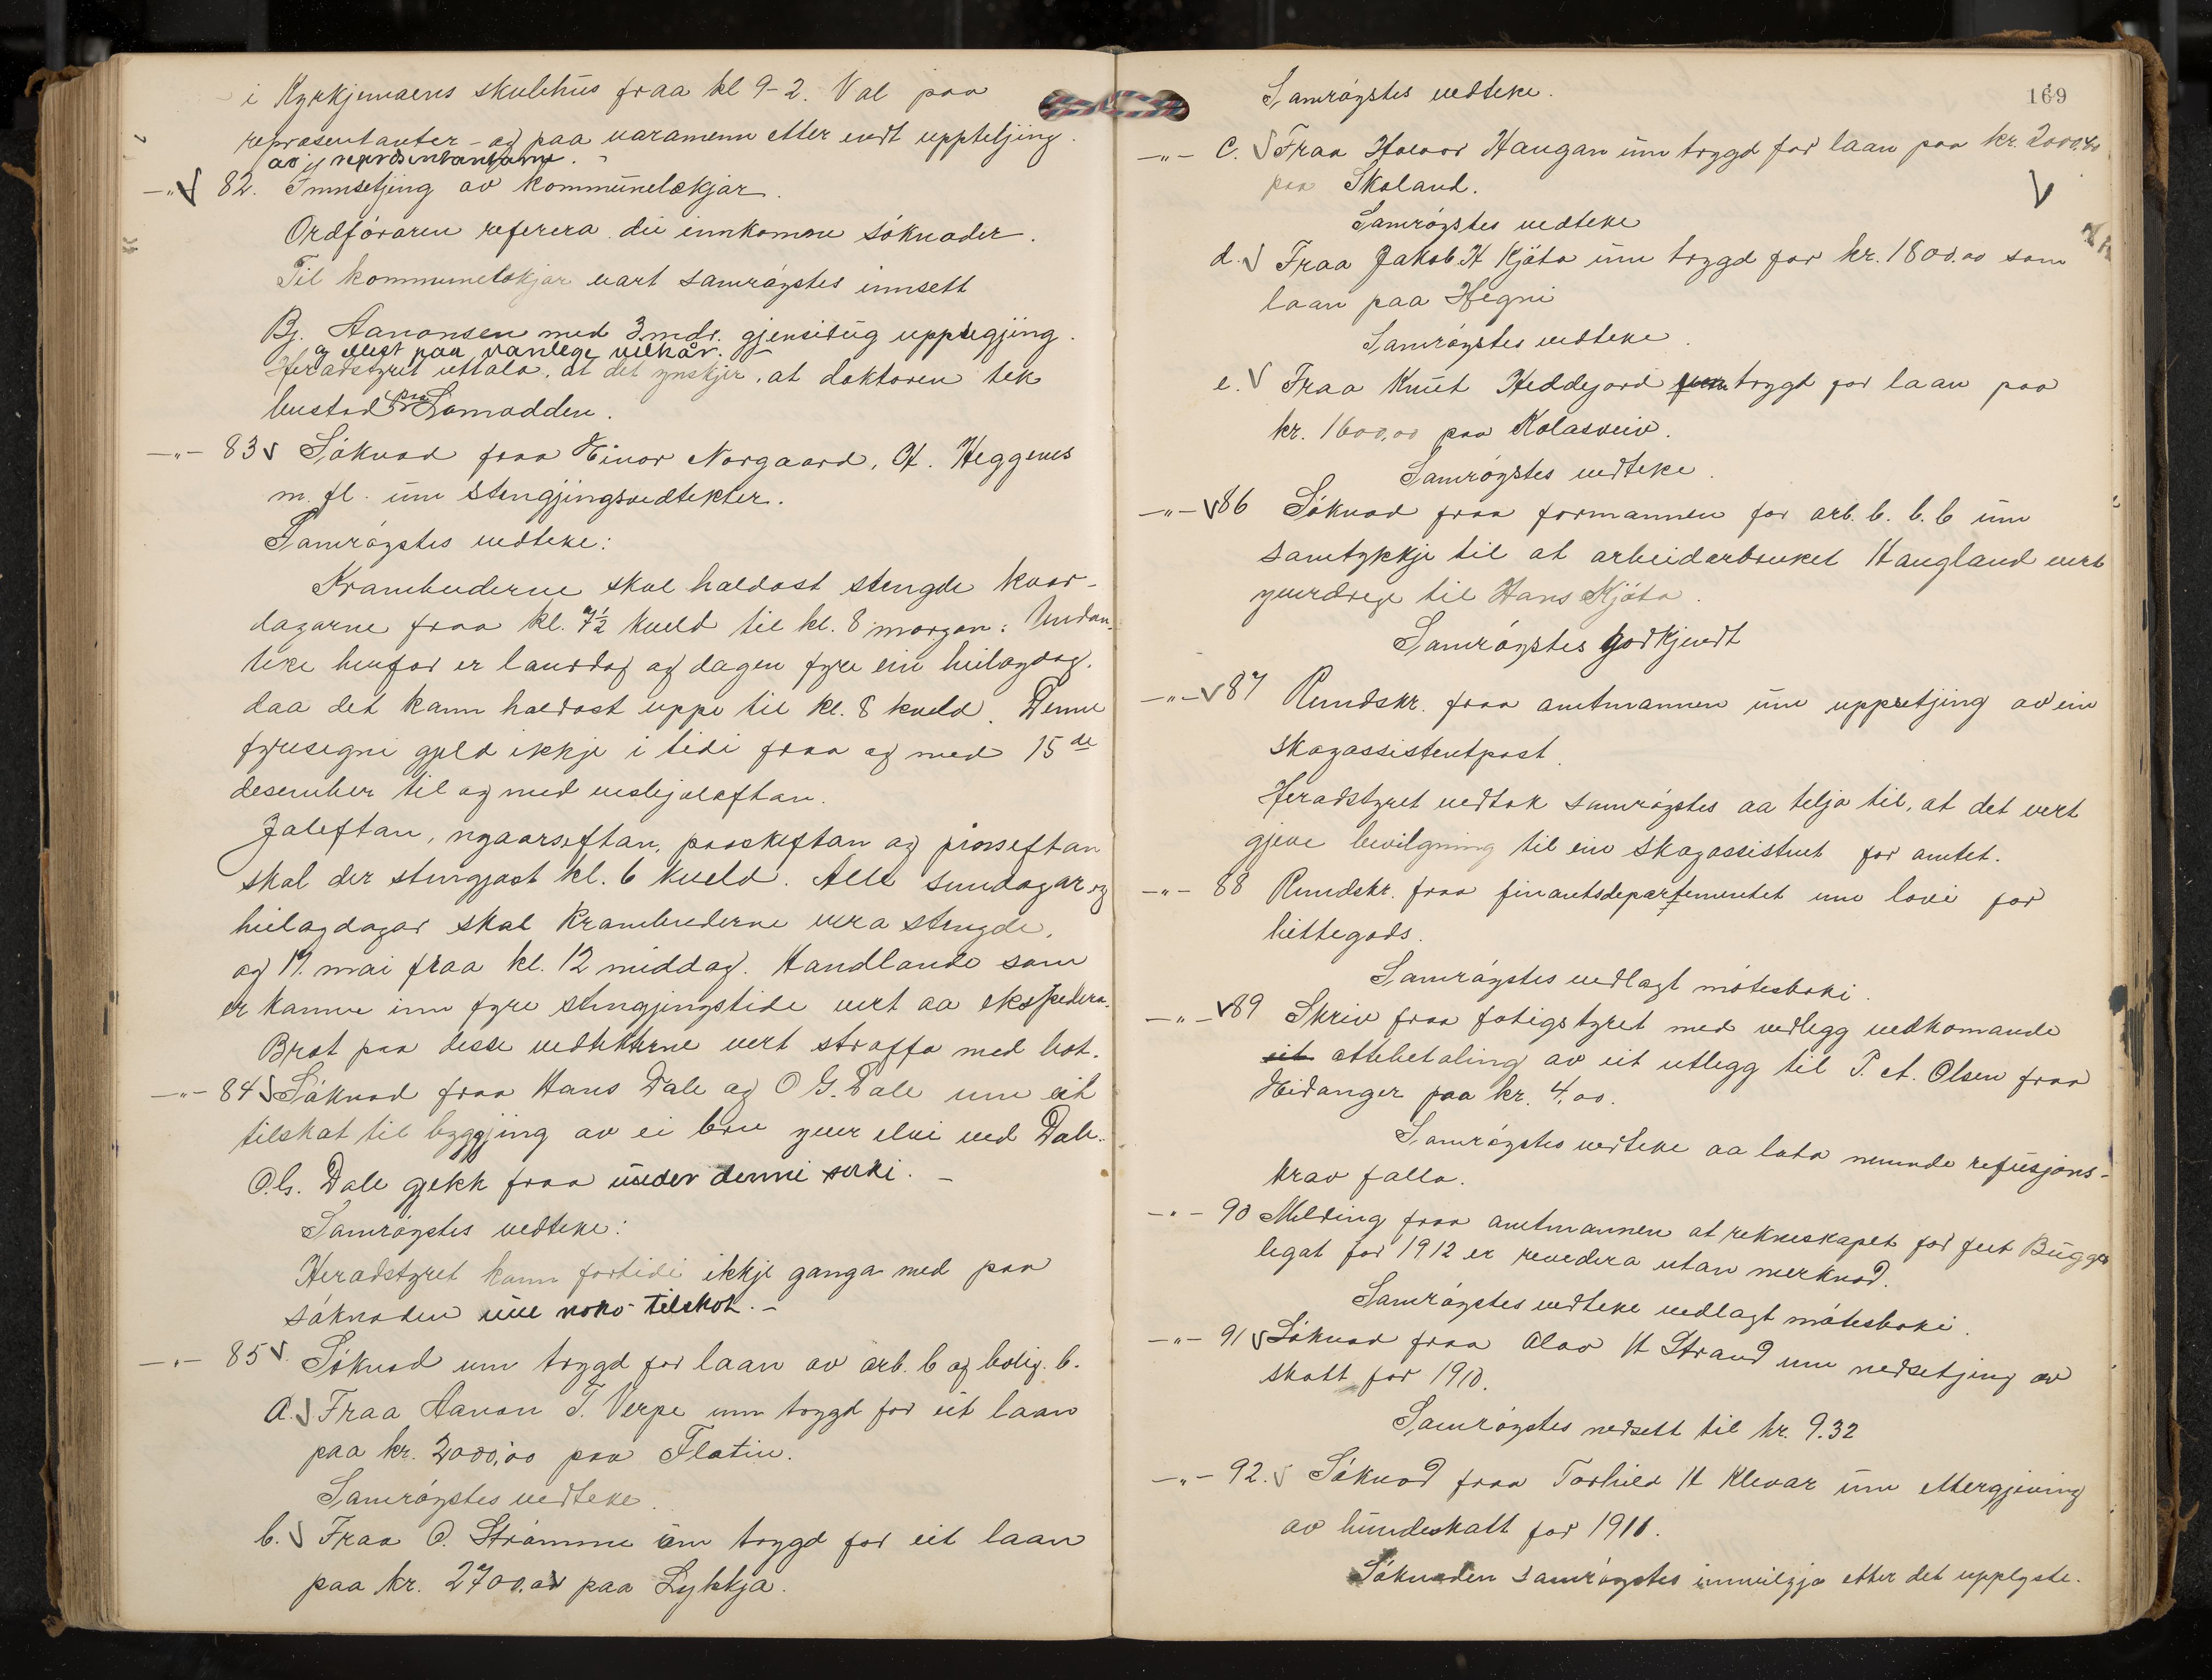 i Kyrkjemoens skulehus fraa kl 9-2. Val paa
representanter - og paa varamenn etter endt uppteljing
av representantarne.
-"- 82. Innsetjing av kommunelækjar.
Ordföraren referera dei innkomne söknader.
Til kommunelækjar vart samröystes innsett
Bj. Aanonsen med 3 mdr. gjensidug uppsegjing.
og ellest paa vanlege vilkår.
Heradstyret uttala, at det ynskjer, at doktoren tek
bustad paa Lomodden.
-"- 83 Söknad fraa Einar Norgaard, H. Heggenes
m. fl. um stengjingsvedtekter.
Samröystes vedteke:
Krambuderne skal haldast stengde kvar-
dagarne fraa kl. 7½ kveld til kl. 8 morgon: Undan-
teke herfor er laurdag og dagen fyre ein heilagdag.
daa det kann haldast uppe til kl. 8 kveld. Denne
fyresegni gjeld ikkje i tidi fraa og med 15de
desember til og med veslejoleftan.
Joleftan, nyaarseftan, paaskeftan og pinseftan
skal der stengjast kl. 6 kveld. Alle sundagar og
heilagdagar skal krambuderne vera stengde,
og 17. mai fraa kl. 12 middag. Handlande som
er komne inn fyre stengjingstide vert aa ekspedera.
Brot paa desse vedtekterne vert straffa med bot.
-"- 84 Söknad fraa Hans Dale og O G. Dale um eit
tilskot til byggjing av ei bru yver elvi ved Dale.
O.G. Dale gjekk fraa under denni saki. -
Samröystes vedteke:
Heradstyret kann fortidi ikkje ganga med paa
söknaden um noko tilskot. -
-"- 85. Söknad um trygd for laan av arb. b og bolig. b.
a. Fraa Aanon T. Verpe um trygd for eit laan
paa kr. 2000,00 paa Flatin.
Samröystes vedteke.
b. Fraa O. Strömme um trygd for eit laan
paa kr. 2700.00 paa Lykkja.
169
Samröystes vedteke.
-"- C. Fraa Halvor Haugan um trygd for laan paa kr. 2000.00
paa Skoland.
Samröystes vedteke
d. Fraa Jakob H Kjöta um trygd for kr. 1800.00 som
laan paa Hegni
Samröystes vedteke.
e. Fraa Knut Heddejord um trygd for laan paa
kr. 1600,00 paa Kolasveiv.
Samröystes vedteke.
-"- 86 Söknad fraa formannen for arb. b. b. b um
samtykkje til at arbeidarbruket Haugland vert
yverdrege til Hans Kjöta.
Samröystes godkjendt
-"- 87 Rundskr. fraa amtmannen um uppretjing av ein
skogassistentpost.
Heradstyret vedtok samröystes aa telja til, at det vert
gjeve bevilgning til ein skogassistent for amtet.
-"- 88 Rundskr. fraa finantsdepartementet um lovi for
hittegods.
Samröystes vedlagt mötesboki.
-"- 89 Skriv fraa fatigstyret med vedlegg vedkomande
eit attebetaling av eit utlegg til P. A. Olsen fraa
Eidanger paa kr. 4,00.
Samröystes vedteke aa lata nemnde refusjons-
krav falla.
-"- 90 Melding fraa amtmannen at rekneskapet for feet Bugges
legat for 1912 er revedera utan merknad.
Samröystes vedteke vedlagt mötesboki.
-"- 91 Söknad fraa Olav H Strand um nedsetjing av
skatt for 1910.
Samröystes nedsett til kr. 9.32
-"- 92. Söknad fraa Torhild H Klevar um ettergjeving
av hundeskatt for 1911.
Söknaden samröystes innvilgja etter det upplyste.